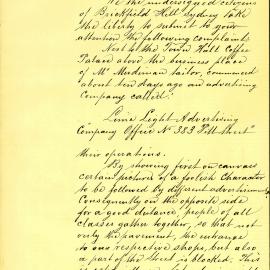 We the undersigned citizens
of Brickfield Hill Sydney take
the liberty to submit to your
attention the following complaint:
Next to the Town Hall Coffee
Palace above the business place
of Mr Murdiman tailor, commenced
about ten days ago an advertising
Company called:
"Lime Light Advertising
Company Office No 383 Pitt street"
their operations.
By showing first on canvas
certain pictures of a foolish Character
to be followed by different advertisements
Consequently on the opposite side
for a good distance, people of all
classes gather together, so that not
only the pavement, the entrance
to our respective shops, but also
a part of the Street is blocked. This